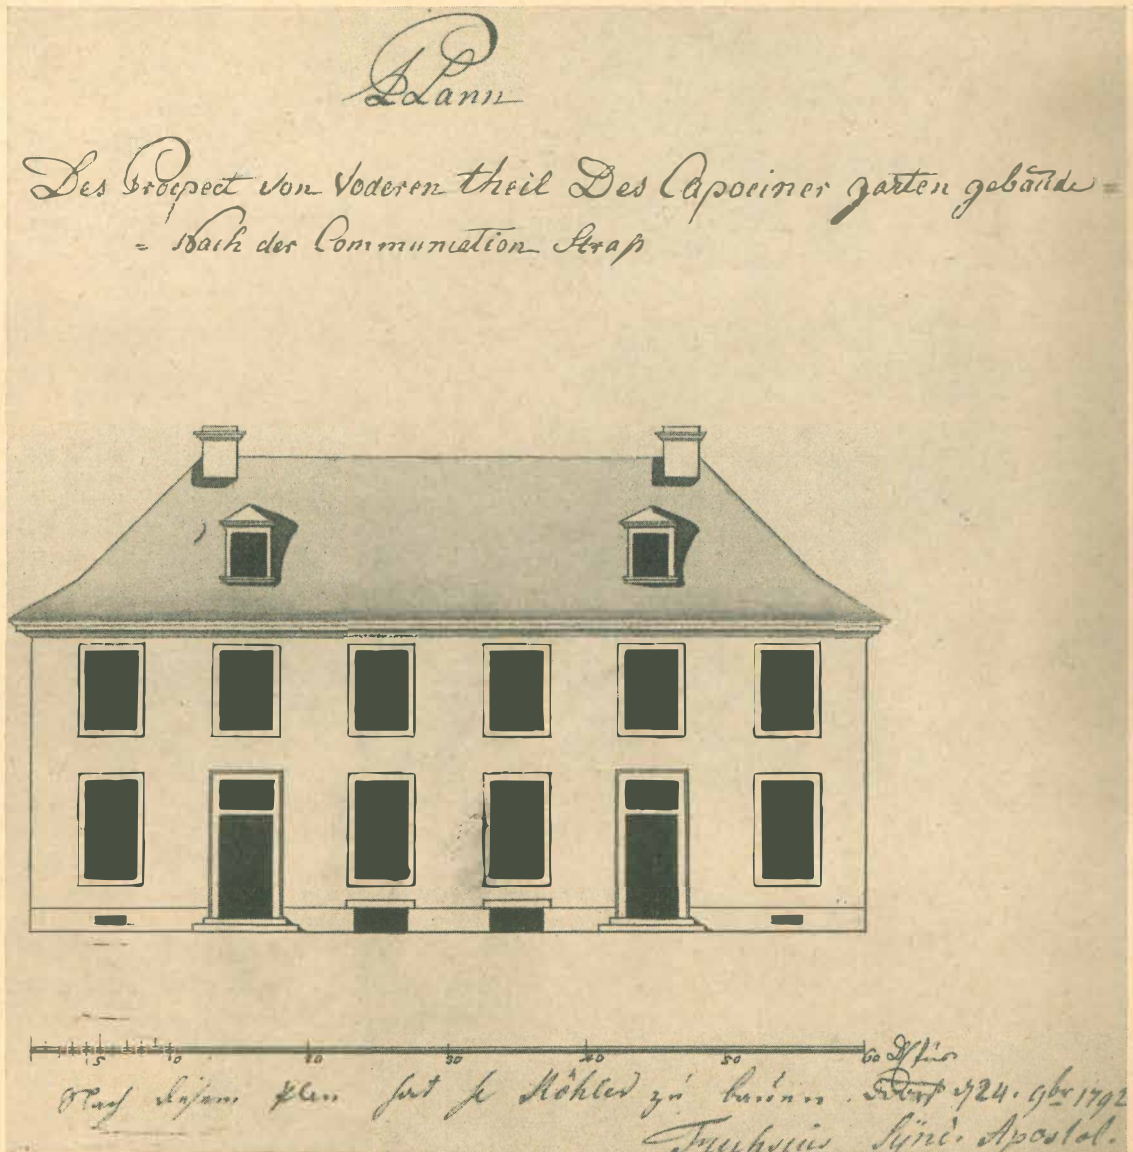 PLann
Des Prospect von Voderen theil Des Capoeiner garten gebäude =
= Nach der Communication Strass
5 10 20 30 40 50 60
Nach diesem Plan hat H Köhler zu bauen. Ddorf d 24. 9br 1792
Sÿnd. Apostol.